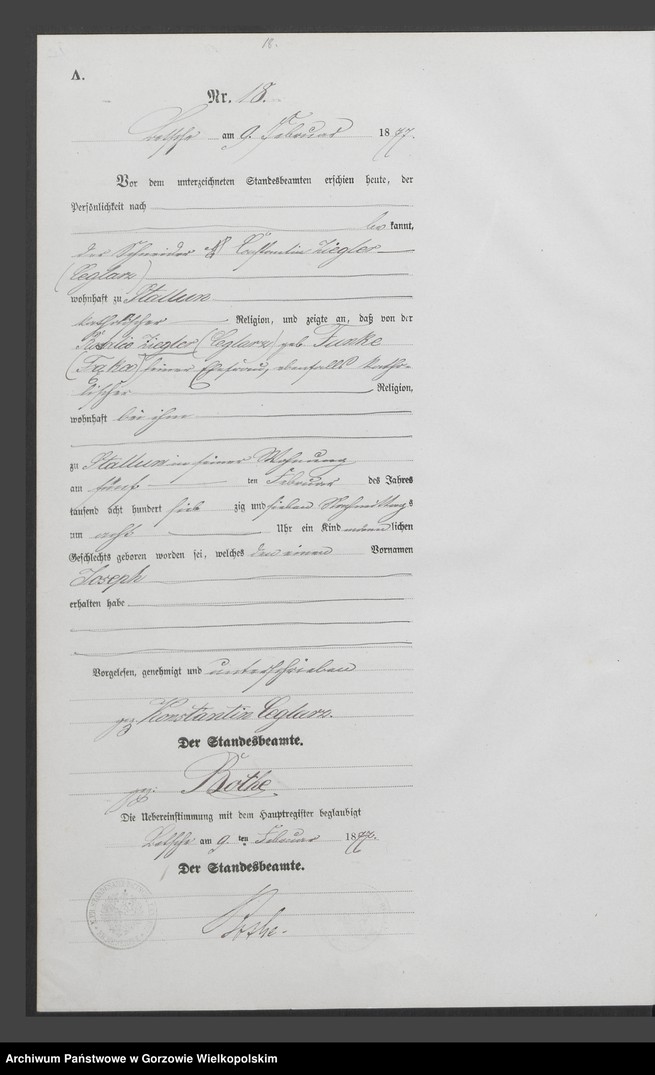 18.
A.
Nr. 18.
Betsche am 9. Februar 1877.
Vor dem unterzeichneten Standesbeamten erschien heute, der
Persönlichkeit nach
be kannt,
der Schneider Constantin Ziegler
(Ceglarz)
wohnhaft zu Stallun
katholischer Religion, und zeigte an, daß von der
Rosalie Ziegler (Ceglarz) geb. Funke
seiner Ehefrau, ebenfalls katho-
lischer Religion,
wohnhaft bei ihm
zu Stallun in seiner Wohnung
am fünf ten Februar des Jahres
tausend acht hundert sieb zig und sieben Nachmittags
um acht Uhr ein Kind männ lichen
Geschlechts geboren worden sei, welches den einen Vornamen
Joseph
erhalten habe
Vorgelesen, genehmigt und unterschrieben
gez. Konstantin Ceglarz.
Der Standesbeamte.
gez. Bothe.
Die Uebereinstimmung mit dem Hauptregister beglaubigt
Betsche am 9. ten Februar 1877.
Der Standesbeamte.
Bothe.
Archiwum Państwowe w Gorzowie Wielkopolskim